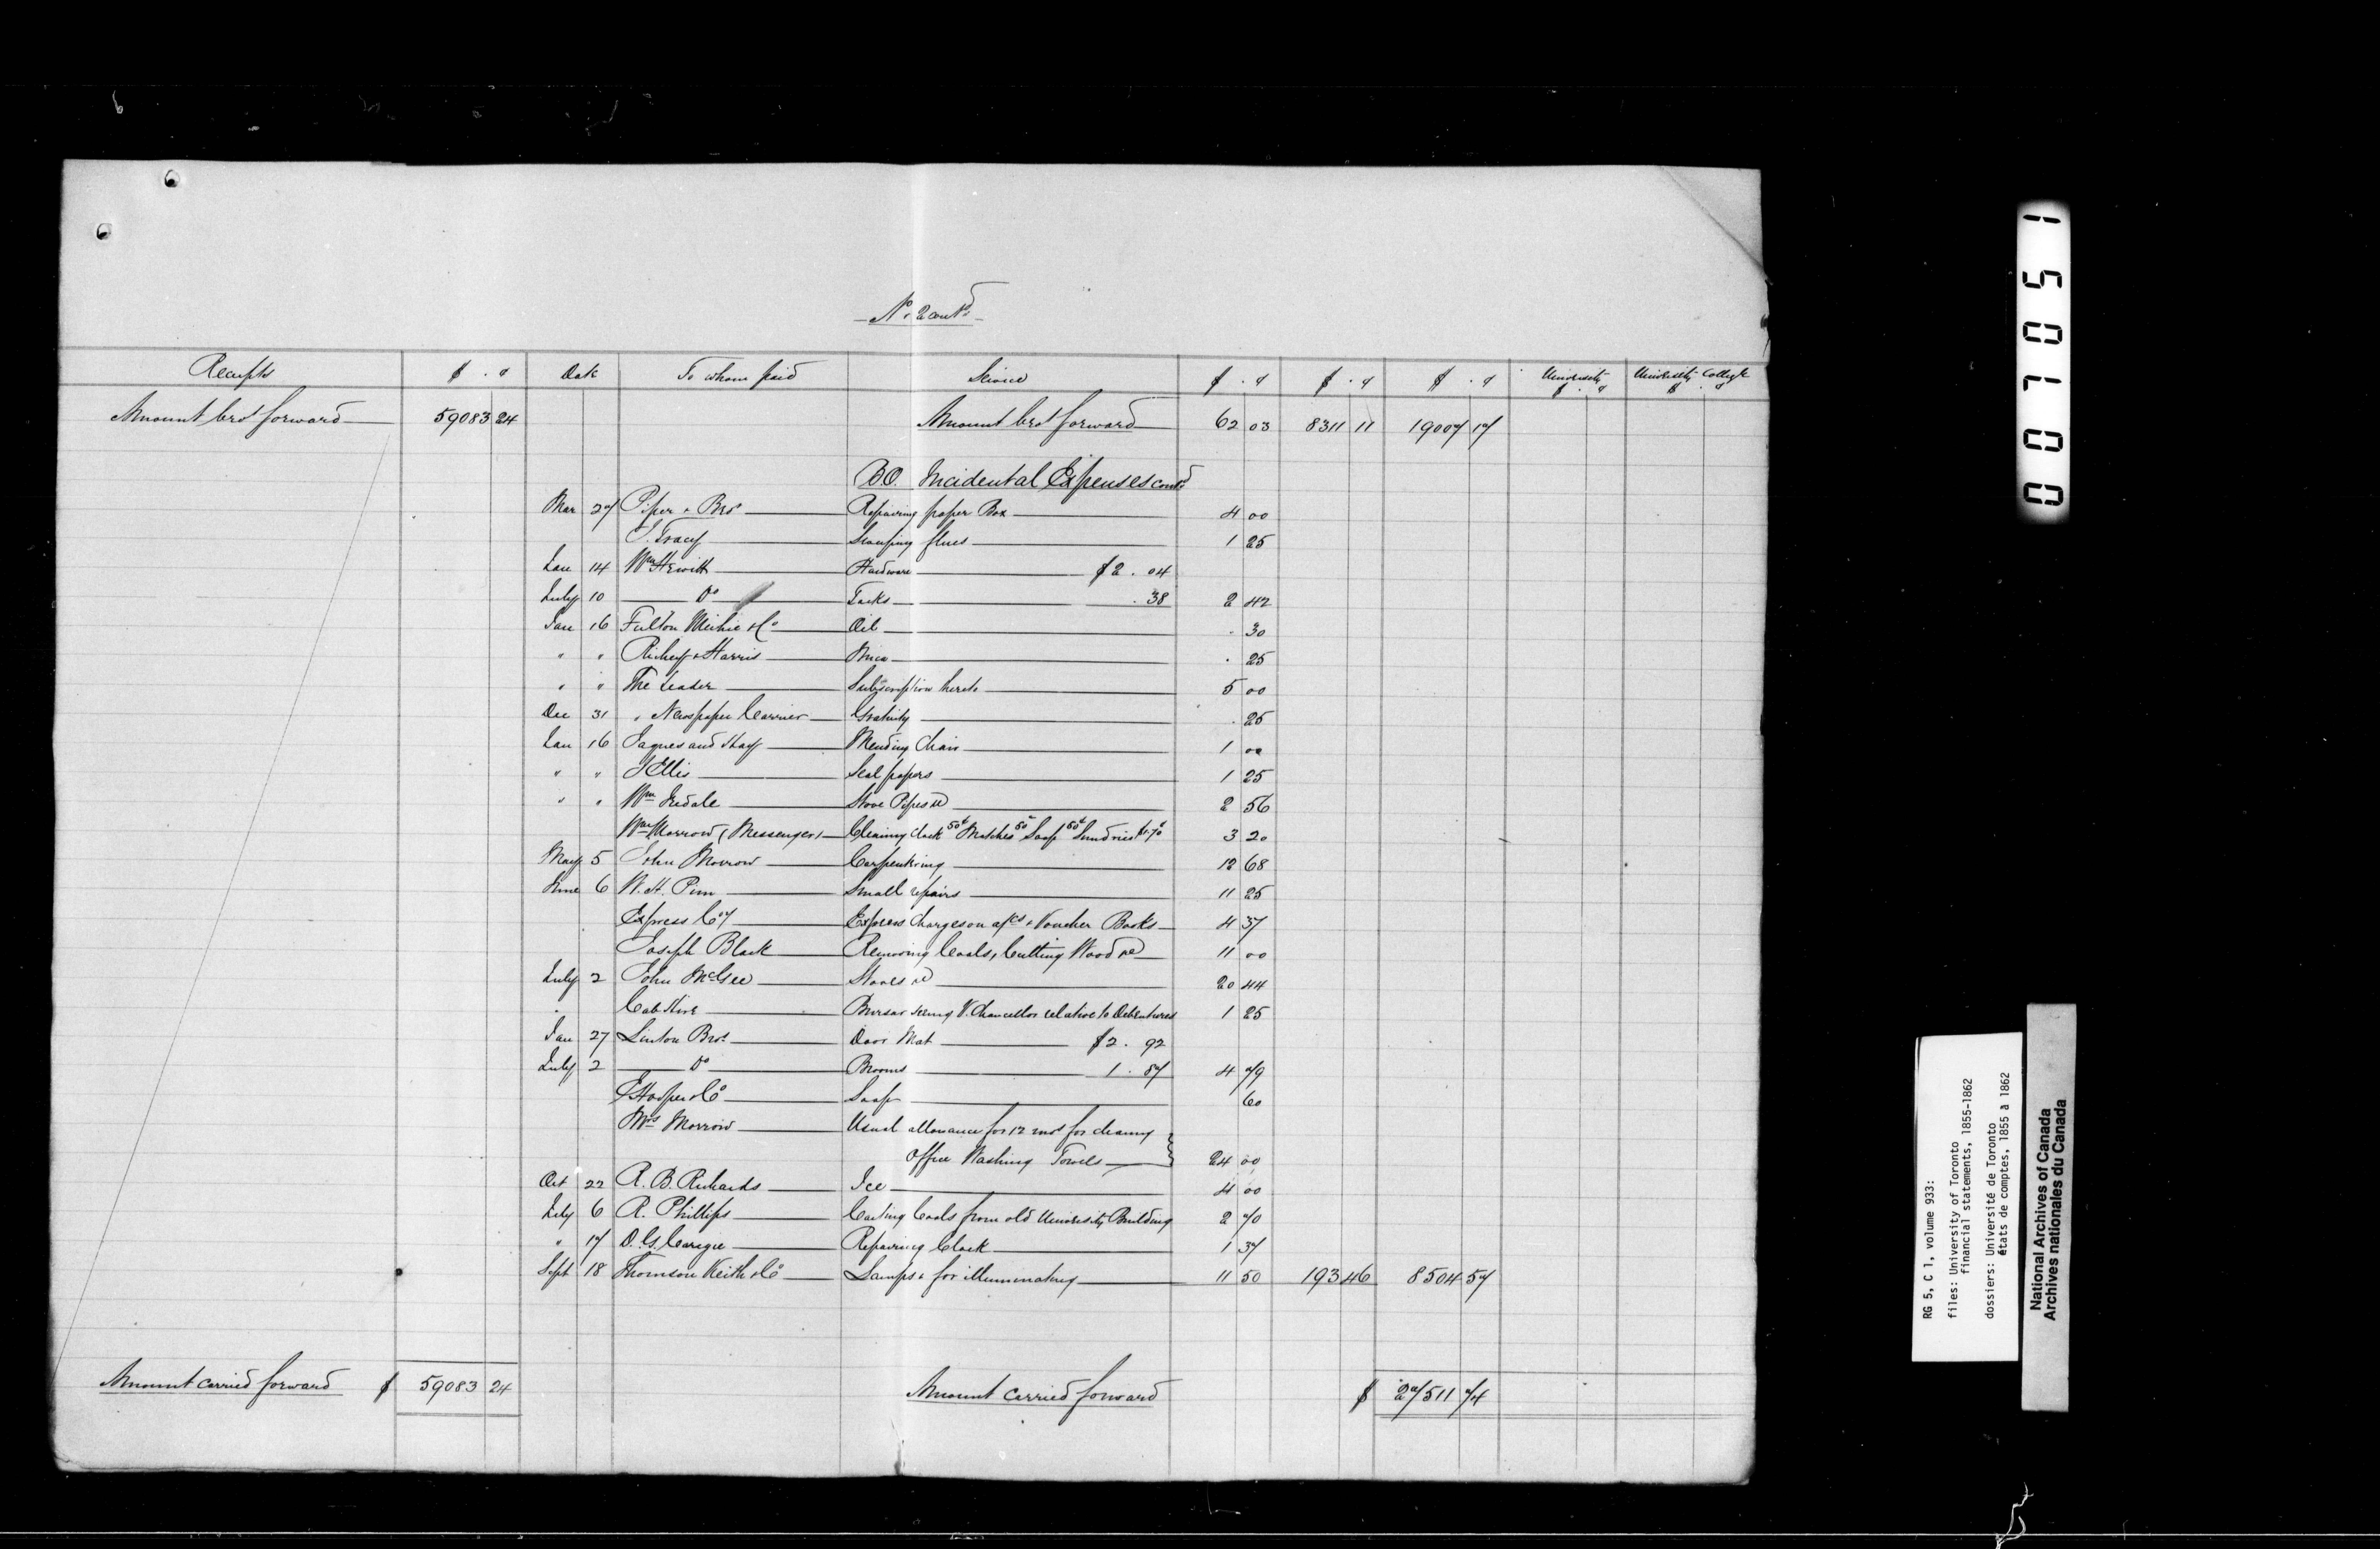 6
6
No. 2 contd
Receipts $ . c Date To whom paid Service $ . c $ . c $ . c University $ . c University College $ . c
Amount brot forward 59083 24 Amount brot forward 62 03 8311 11 19007 17
B.O. Incidental Expenses contd
Mar 27 Piper & Bros Repairing paper Box 4 00
T. Tracy flues 1 25
Jan 14 Wm Hewitt Hardware $2 . 04
July 10 Do Tacks . 38 2 42
Jan 16 Fulton Michie & Co Oil . 30
" " Richey & Harris . 25
" " The Leader Subscription hereto 5 00
Dec 31 " Newspaper Carrier Gratuity . 25
Jan 16 Jaques and Hay Mending Chair 1 00
" " J Ellis Seal papers 1 25
" " Wm Iredale Stove Pipes &c 2 56
Wm Morrow (Messenger) Cleaning clock 50c Matches 50c Soap 50c Sundries $1.70 3 20
May 5 John Morrow Carpentering 12 68
June 6 W. H. Pim Small repairs 11 25
Express Coy Express Charges on a/cs & Voucher Books 4 37
Joseph Black Removing Coals, Cutting Wood &c 11 00
July 2 John McGee Stoves &c 20 44
" Cab Hire Bursar seeing V. Chancellor relative to Debentures 1 25
Jan 27 Linton Bros Door Mat $2 . 92
July 2 Do Brooms 1 . 87 4 79
Hooper & Co Soap 60
Mrs Morrow Usual allowance for 12 mos for cleaning
Office Washing Towels 24 00
Oct 22 R. B. Richards Ice 4 00
July 6 R. Phillips Carting Coals from old University Building 2 70
" 17 D. G. Caregie Repairing Clock 1 37
Sept 18 Thomson Keith & Co Lamps & for illuminating 11 50 193 46 8504 57
Amount carried forward $ 59083 24 Amount carried forward $ 27511 74
001051
RG 5, C 1, volume 933:
files: University of Toronto
financial statements, 1855-1862
dossiers: Université de Toronto
états de comptes, 1855 à 1862
National Archives of Canada
Archives nationales du Canada